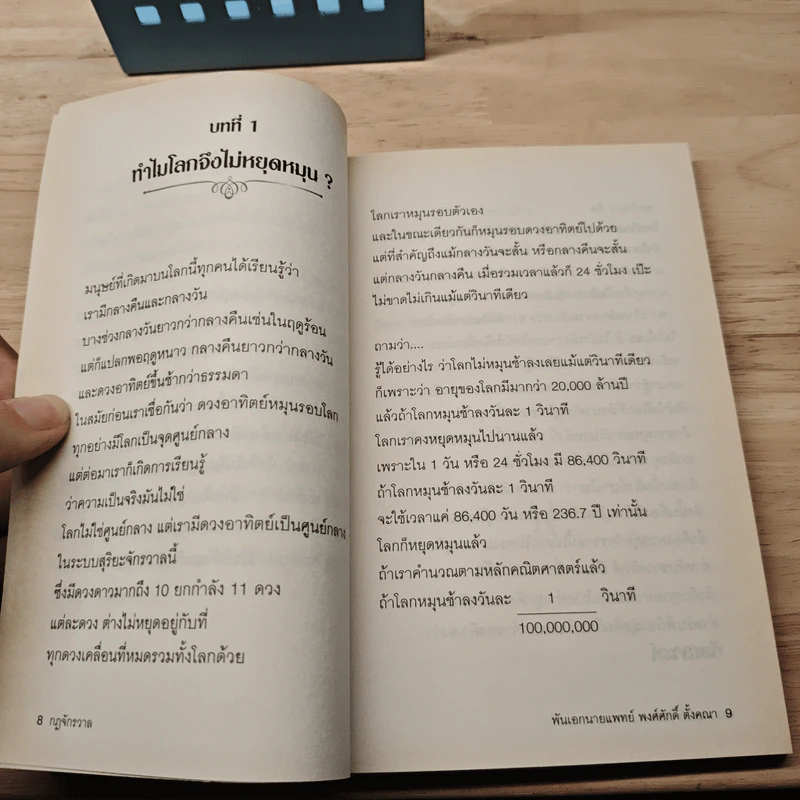 บทที่ 1
ทำไมโลกจึงไม่หยุดหมุน ?
มนุษย์ที่เกิดมาบนโลกนี้ทุกคนได้เรียนรู้ว่า
เรามีกลางคืนและกลางวัน
บางช่วงกลางวันยาวกว่ากลางคืนเช่นในฤดูร้อน
แต่ก็แปลกพอฤดูหนาว กลางคืนยาวกว่ากลางวัน
และดวงอาทิตย์ขึ้นช้ากว่าธรรมดา
ในสมัยก่อนเราเชื่อกันว่า ดวงอาทิตย์หมุนรอบโลก
ทุกอย่างมีโลกเป็นจุดศูนย์กลาง
แต่ต่อมาเราก็เกิดการเรียนรู้
ว่าความเป็นจริงมันไม่ใช่
โลกไม่ใช่ศูนย์กลาง แต่เรามีดวงอาทิตย์เป็นศูนย์กลาง
ในระบบสุริยะจักรวาลนี้
ซึ่งมีดวงดาวมากถึง 10 ยกกำลัง 11 ดวง
แต่ละดวง ต่างไม่หยุดอยู่กับที่
ทุกดวงเคลื่อนที่หมดรวมทั้งโลกด้วย
8 กฎจักรวาล
โลกเราหมุนรอบตัวเอง
และในขณะเดียวกันก็หมุนรอบดวงอาทิตย์ไปด้วย
แต่ที่สำคัญถึงแม้กลางวันจะสั้น หรือกลางคืนจะสั้น
แต่กลางวันกลางคืน เมื่อรวมเวลาแล้วก็ 24 ชั่วโมง เป๊ะ
ไม่ขาดไม่เกินแม้แต่วินาทีเดียว
ถามว่า....
รู้ได้อย่างไร ว่าโลกไม่หมุนช้าลงเลยแม้แต่วินาทีเดียว
ก็เพราะว่า อายุของโลกมีมากว่า 20,000 ล้านปี
แล้วถ้าโลกหมุนช้าลงวันละ 1 วินาที
โลกเราคงหยุดหมุนไปนานแล้ว
เพราะใน 1 วัน หรือ 24 ชั่วโมง มี 86,400 วินาที
ถ้าโลกหมุนช้าลงวันละ 1 วินาที
จะใช้เวลาแค่ 86,400 วัน หรือ 236.7 ปี เท่านั้น
โลกก็หยุดหมุนแล้ว
ถ้าเราคำนวณตามหลักคณิตศาสตร์แล้ว
ถ้าโลกหมุนช้าลงวันละ 1 วินาที
100,000,000
พันเอกนายแพทย์ พงศ์ศักดิ์ ตั้งคณา 9